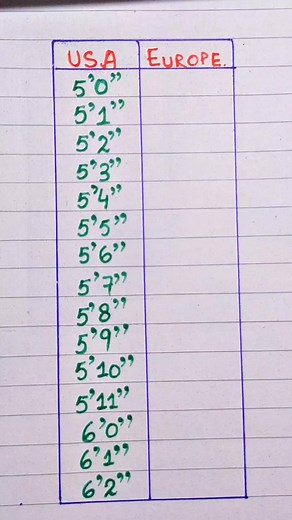 USA EUROPE.
5'0"
5'1"
5'2"
5'3"
5'4"
5'5"
5'6"
5'7"
5'8"
5'9"
5'10"
5'11"
6'0"
6'1"
6'2"